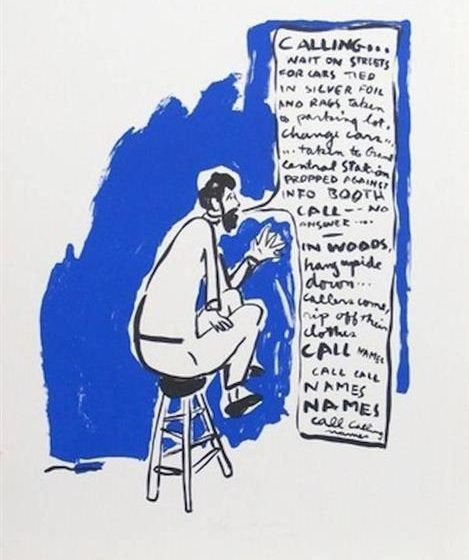 CALLING...
WAIT ON STREETS
FOR CARS TIED
IN SILVER FOIL
AND RAGS taken
to parking lot,
change cars..
...taken to Grand
Central Station
PROPPED AGAINST
INFO BOOTH
CALL -- NO
ANSWER ....
IN WOODS,
hang upside
down...
callers come,
rip off their
clothes
CALL NAMES
CALL CALL
NAMES
NAMES
call calling
names